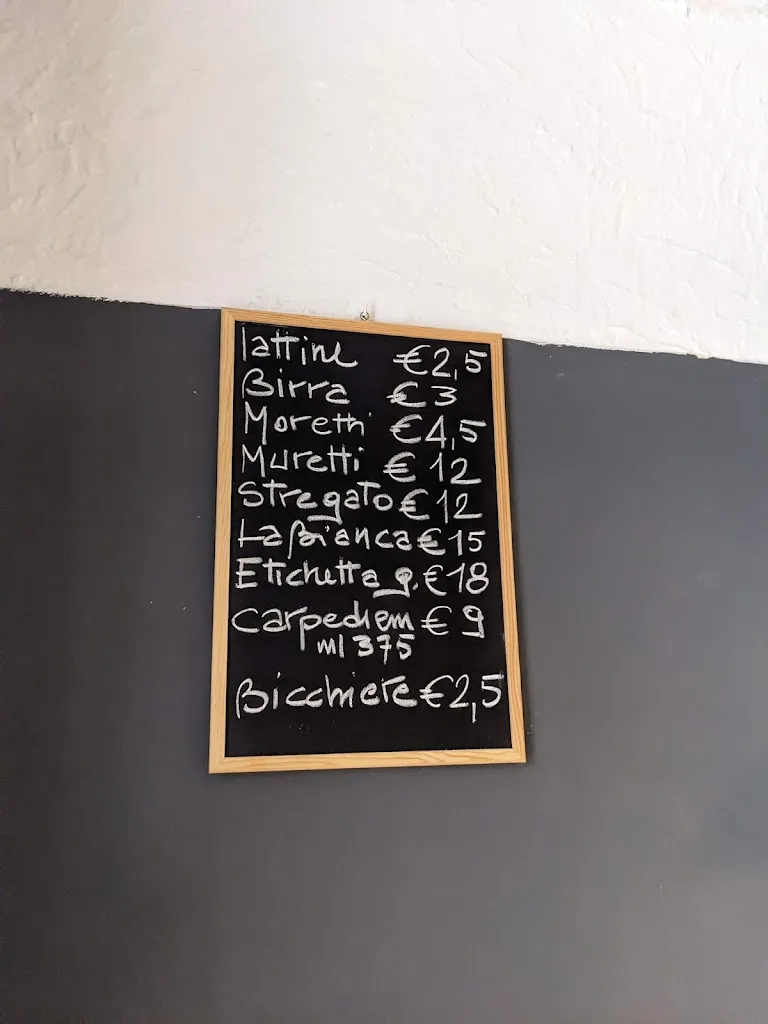 lattine €2,5
Birra €3
Moretti €4,5
Muretti €12
Stregato €12
La Bianca €15
Etichetta g. €18
carpediem €9
ml 375
Bicchiere €2,5